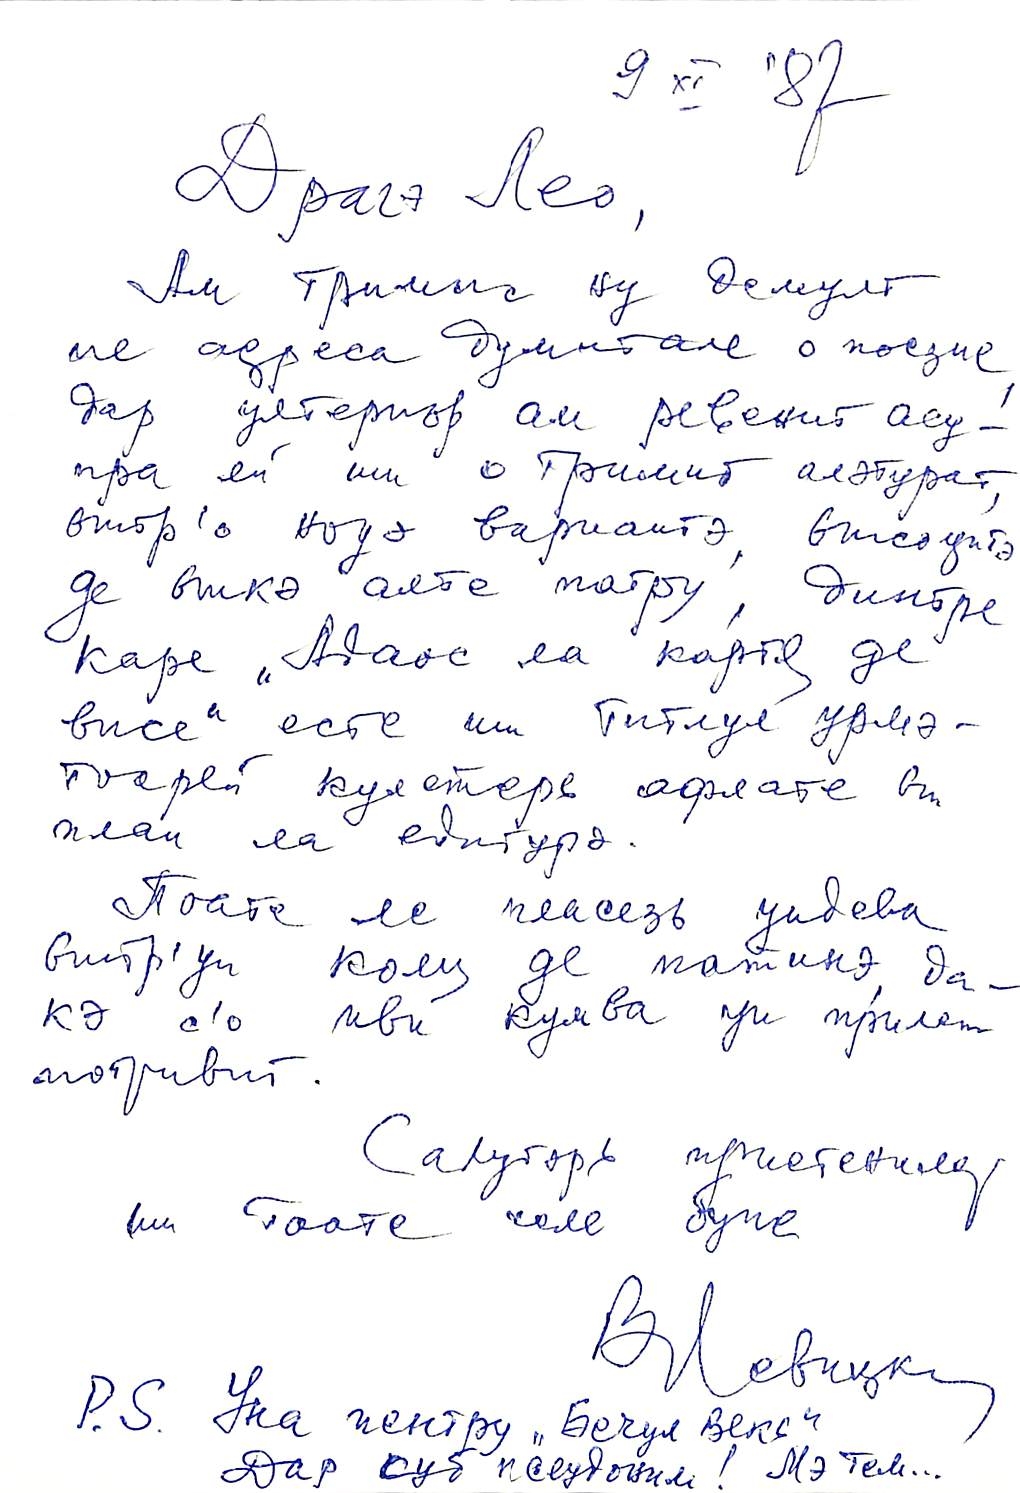 9 XI '87
Драгэ Лео,
Ам тримис ну демулт
пе адреса думитале о поезие
дар ултериор ам ревенит асу-
пра ей ши о тримит алэтурат,
ынтр'о ноуэ вариантэ, ынсоцитэ
де ынкэ алте патру, динтре
каре „Адаос ла картя де
висе" есте ши титлул урмэ-
тоарей кулеӂерь афлате ын
план ла едитурэ.
Поате ле пласезь ундева
ынтр'ун колц де паӂинэ, да-
кэ с'о иви кумва ун прилеж
потривит.
Салутэрь приетенешть
ши тоате челе буне
В Левицки
P.S. Уна пентру „Бечул векь"
Дар суб псеудоним! Мэ тем...